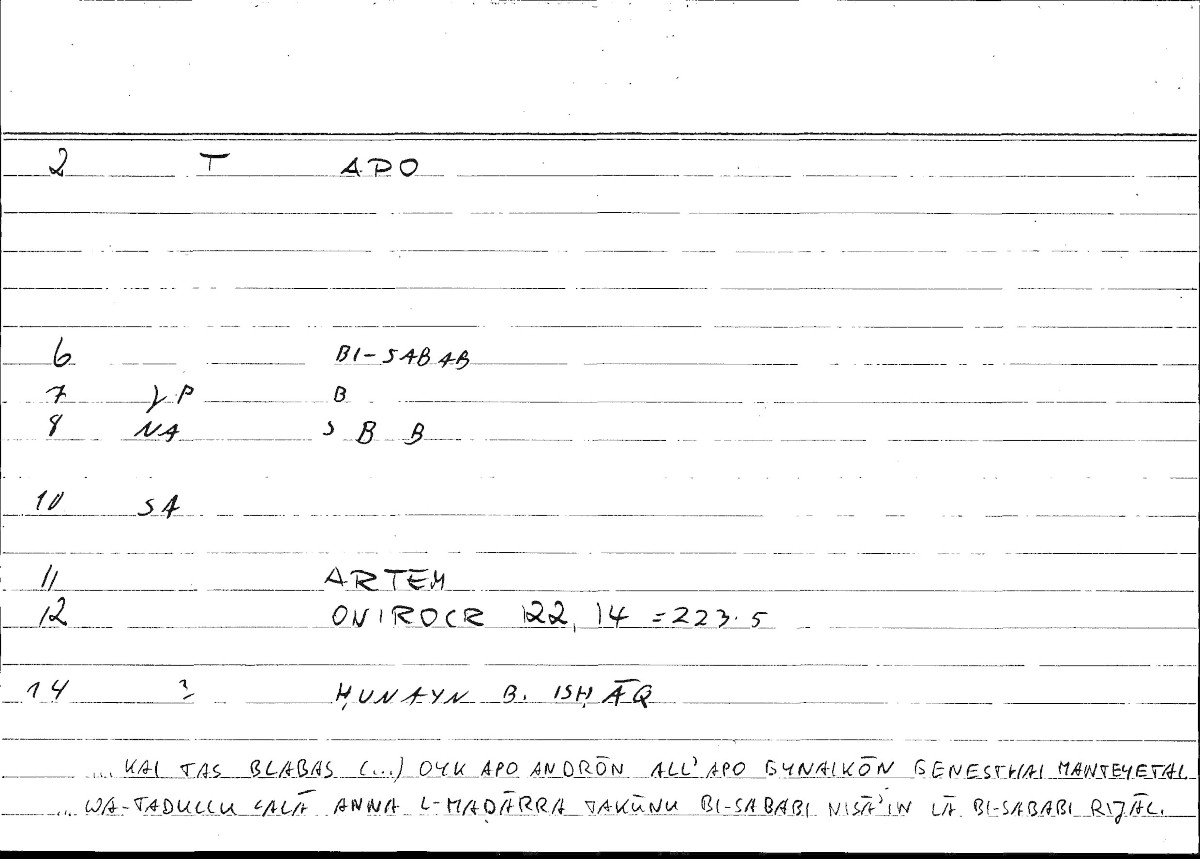 2 T APO
6 BI-SABAB
7 γP B
8 NA S B B
10 SA
11 ARTEM
12 ONIROCR 122, 14 = 223.5
14 ? ḤUNAYN B. ISḤĀQ
... KAI TAS BLABAS (...) OYK APO ANDRŌN ALL' APO GYNAIKŌN GENESTHAI MANTEYETAI
... WA-TADULLU ʿALĀ ANNA L-MAḌĀRRA TAKŪNU BI-SABABI NISĀ'IN LĀ BI-SABABI RIJĀL.